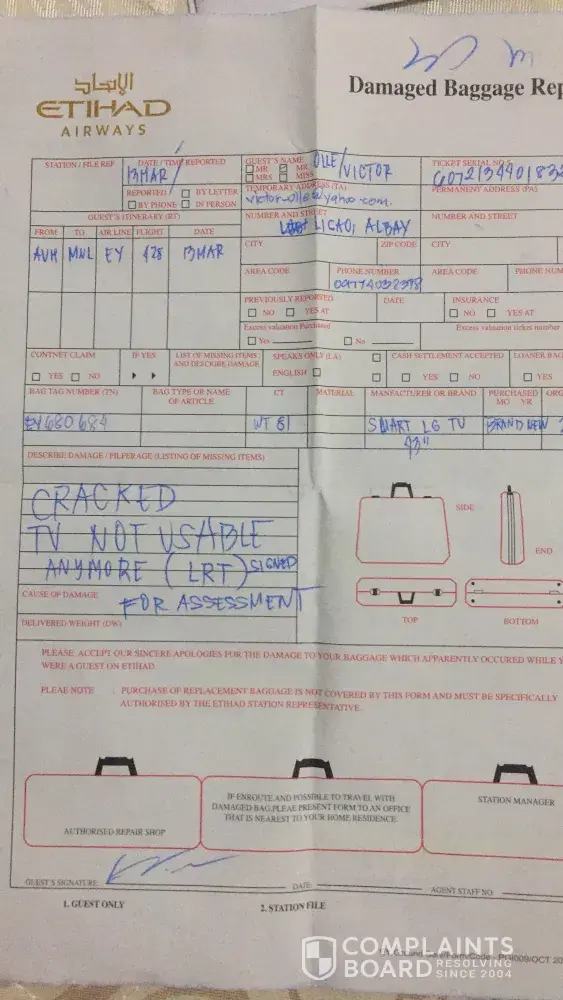 الإتحاد
ETIHAD
AIRWAYS
Damaged Baggage Rep
STATION / FILE REF
DATE / TIME REPORTED
13MAR/
REPORTED
BY LETTER
BY PHONE
IN PERSON
GUEST'S NAME
MR
MR
MRS
MISS
OLLE/VICTOR
TICKET SERIAL NO'S
TEMPORARY ADDRESS (TA)
victor-olle@yahoo.com.
PERMANENT ADDRESS (PA)
GUEST'S ITINERARY (RT)
NUMBER AND STREET
LIGAO, ALBAY
NUMBER AND STREET
FROM TO AIR LINE FLIGHT DATE
AUH MNL EY 428 13MAR
CITY
ZIP CODE
CITY
AREA CODE
PHONE NUMBER
AREA CODE
PHONE NUM
PREVIOUSLY REPORTED
NO
YES AT
DATE
INSURANCE
NO
YES AT
Excess valuation Purchased
Yes
No
Excess valuation ticket number
CONTNET CLAIM
YES
NO
IF YES
LIST OF MISSING ITEMS
AND DESCRIBE DAMAGE
SPEAKS ONLY (LA)
ENGLISH
CASH SETTLEMENT ACCEPTED
YES
NO
LOANER BAG
YES
BAG TAG NUMBER (TN)
BAG TYPE OR NAME
OF ARTICLE
CT
MATERIAL
MANUFACTURER OR BRAND
PURCHASED
MO YR
ORG
EY680684
SMART LG TV
BRAND NEW
DESCRIBE DAMAGE / PILFERAGE (LISTING OF MISSING ITEMS)
CRACKED
TV NOT USABLE
ANYMORE (LRT) SIGNED
CAUSE OF DAMAGE
FOR ASSESSMENT
DELIVERED WEIGHT (DW)
SIDE
END
TOP
BOTTOM
PLEASE ACCEPT OUR SINCERE APOLOGIES FOR THE DAMAGE TO YOUR BAGGAGE WHICH APPARENTLY OCCURED WHILE Y
WERE A GUEST ON ETIHAD.
PLEAE NOTE : PURCHASE OF REPLACEMENT BAGGAGE IS NOT COVERED BY THIS FORM AND MUST BE SPECIFICALLY
AUTHORISED BY THE ETIHAD STATION REPRESENTATIVE.
AUTHORISED REPAIR SHOP
IF ENROUTE AND POSSIBLE TO TRAVEL WITH
DAMAGED BAG,PLEAE PRESENT FORM TO AN OFFICE
THAT IS NEAREST TO YOUR HOME RESIDENCE.
STATION MANAGER
GUEST'S SIGNATURE:
DATE:
AGENT STAFF NO.
1. GUEST ONLY
2. STATION FILE
COMPLAINTS
BOARD RESOLVING
SINCE 2004